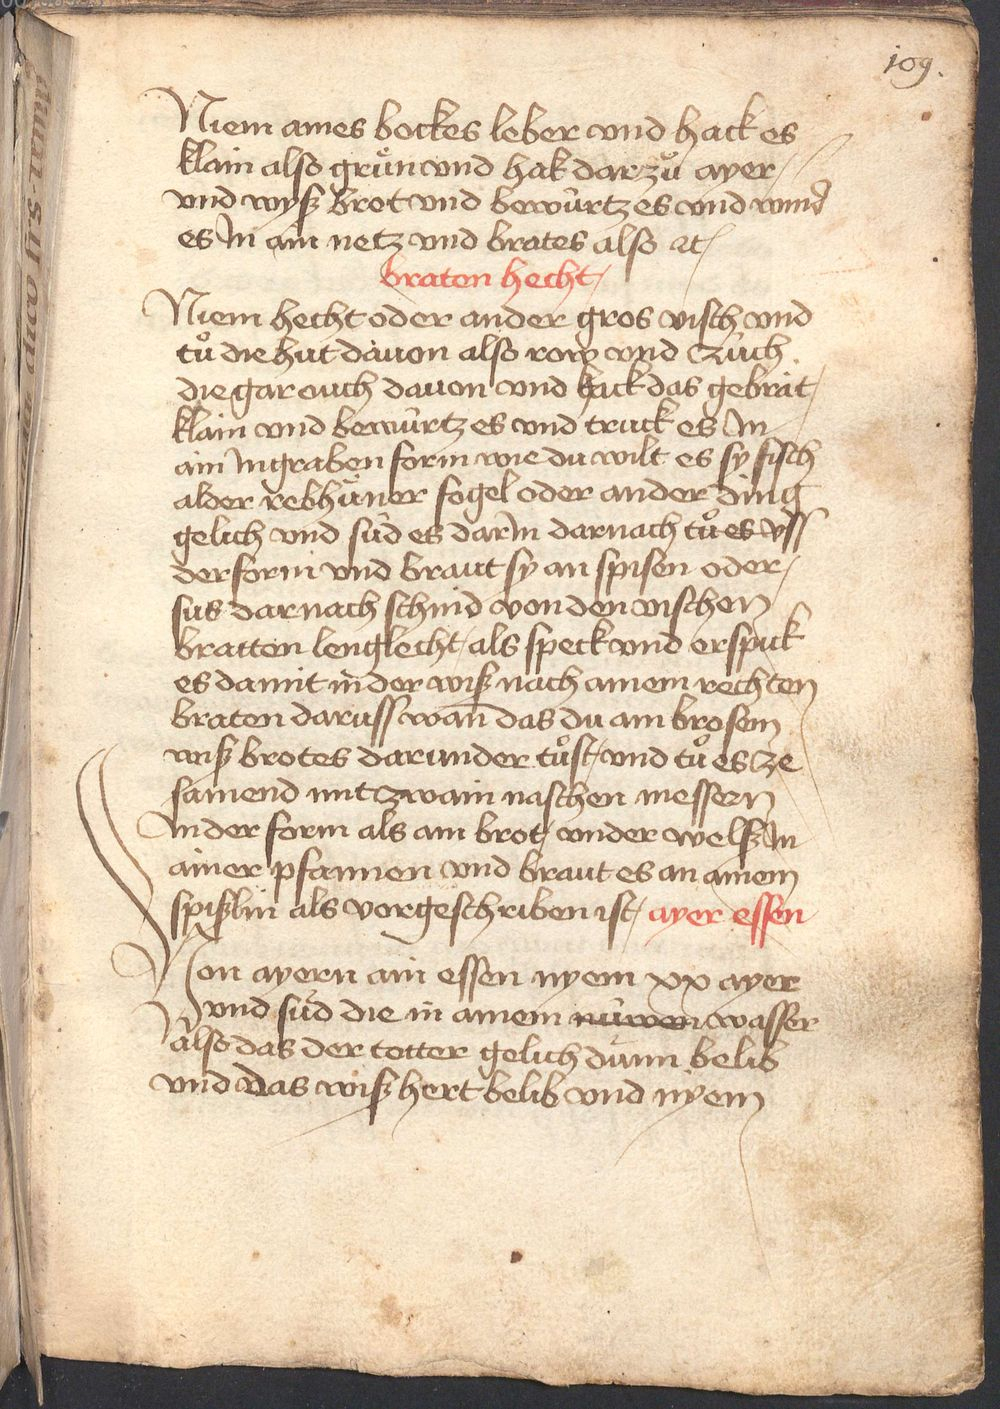 109.
Niem aines bockes leber vnd hack es
klain also grůn vnd hak darzů ayer
vnd wyß brot vnd bewürtz es vnd wind
es In ain netz vnd brates also
braten hecht
Niem hecht oder ander gros visch vnd
tů die hut dauon also row vnd züch
die gar ouch dauon vnd hack das gebrät
klain vnd bewürtz es vnd truck es In
ain Ingraben form wie du wilt es sy fisch
alder rebhüner fogel oder ander ding
gelich vnd süd es darIn darnach tů es vss
der form vnd braut sy an spisen oder
sus darnach schnid von den vischen
bratten lenglecht als speck vnd erspick
es damit in der wiß nach ainem rechten
braten daruss wan das du ain brosem
wiß brotes darunder tůst vnd tů es ze
samend mit zwain naschen messern
In der form als ain brot vnder welß In
ainer pfannen vnd braut es an ainem
spißlin als vorgeschriben ist ayer essen
Von ayern ain essen nyem xx ayer
vnd süd die in ainem nüwen wasser
also das der totter gelich dünn belib
vnd das wiß hert belib vnd nyem